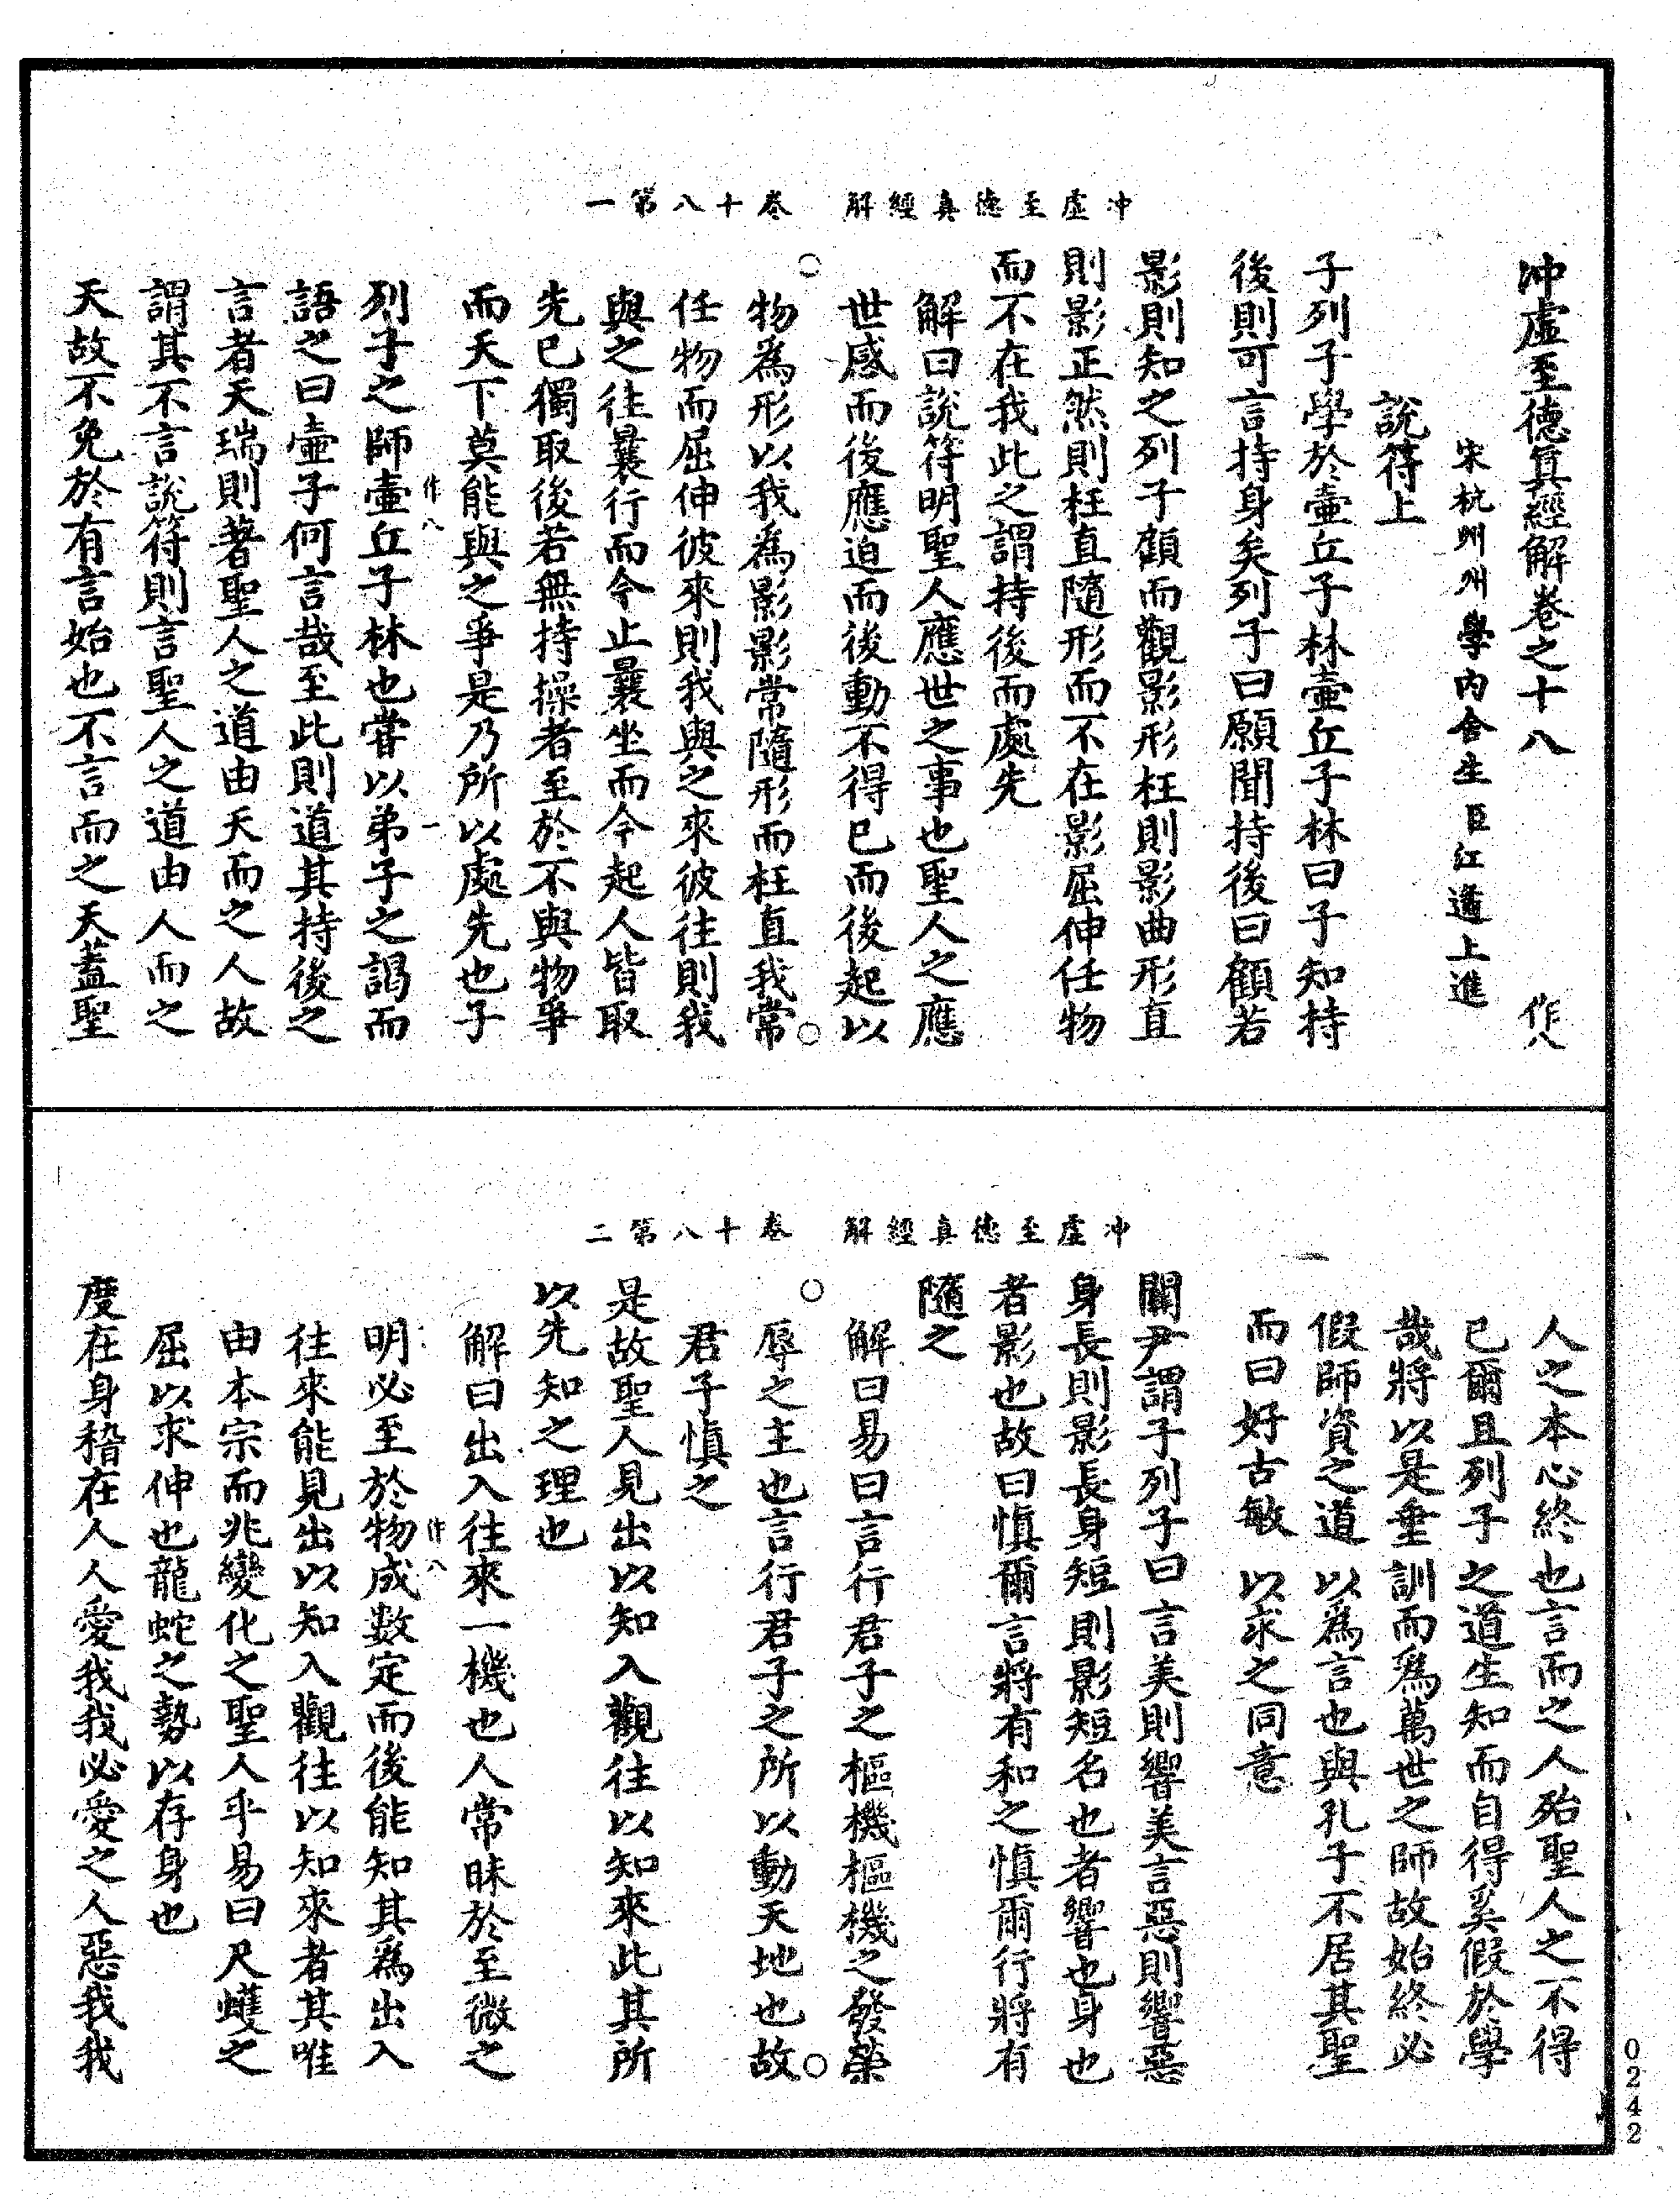 冲虛至德真經解　卷十八第一
冲虛至德眞經解卷之十八　作八
宋杭州州學內舍生臣江遹上進
說符上
子列子學於壺丘子林壺丘子林曰子知持
後則可言持身矣列子曰願聞持後曰顧若
影則知之列子顧而觀影形枉則影曲形直
則影正然則枉直隨形而不在影屈伸任物
而不在我此之謂持後而處先
解曰說符明聖人應世之事也聖人之應
世感而後應迫而後動不得已而後起以
物為形以我為影影常隨形而枉直我常
任物而屈伸彼來則我與之來彼往則我
與之往曩行而今止曩坐而今起人皆取
先己獨取後若無持操者至於不與物爭
而天下莫能與之爭是乃所以處先也子
作八　一
列子之師壺丘子林也嘗以弟子之謁而
語之曰壺子何言哉至此則道其持後之
言者天瑞則著聖人之道由天而之人故
謂其不言說符則言聖人之道由人而之
天故不免於有言始也不言而之天蓋聖
冲虛至德真經解　卷十八第二
人之本心終也言而之人殆聖人之不得
已爾且列子之道生知而自得奚假於學
哉將以是垂訓而爲萬世之師故始終必
假師資之道以為言也與孔子不居其聖
而曰好古敏以求之同意
關尹謂子列子曰言美則響美言惡則響惡
身長則影長身短則影短名也者響也身也
者影也故曰慎爾言將有和之慎爾行將有
隨之
解曰易曰言行君子之樞機樞機之發榮
辱之主也言行君子之所以動天地也故
君子慎之
是故聖人見出以知入觀往以知來此其所
以先知之理也
解曰出入往來一機也人常昧於至微之
作八
明必至於物成数定而後能知其爲出入
往來能見出以知入觀往以知來者其唯
由本宗而兆變化之聖人乎易曰尺蠖之
屈以求伸也龍蛇之勢以存身也
度在身稽在人人愛我我必愛之人惡我我
0242